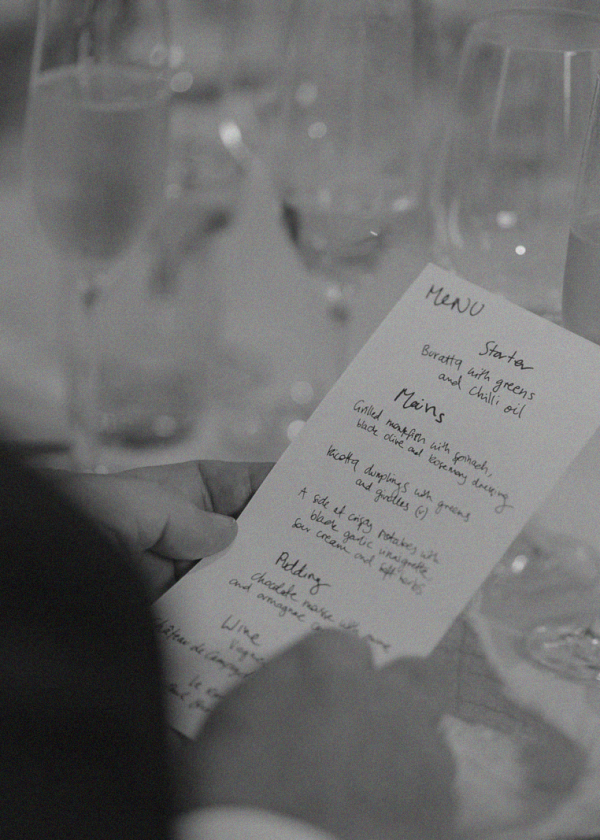 MENU
Starter
Buratta with greens
and chilli oil
Mains
Grilled monkfish with spinach,
black olive and rosemary dressing
Ricotta dumplings with greens
and girolles (v)
A side of crispy potatoes with
black garlic vinaigrette
sour cream and soft herbs
Pudding
chocolate mousse with
and armagnac
Wine